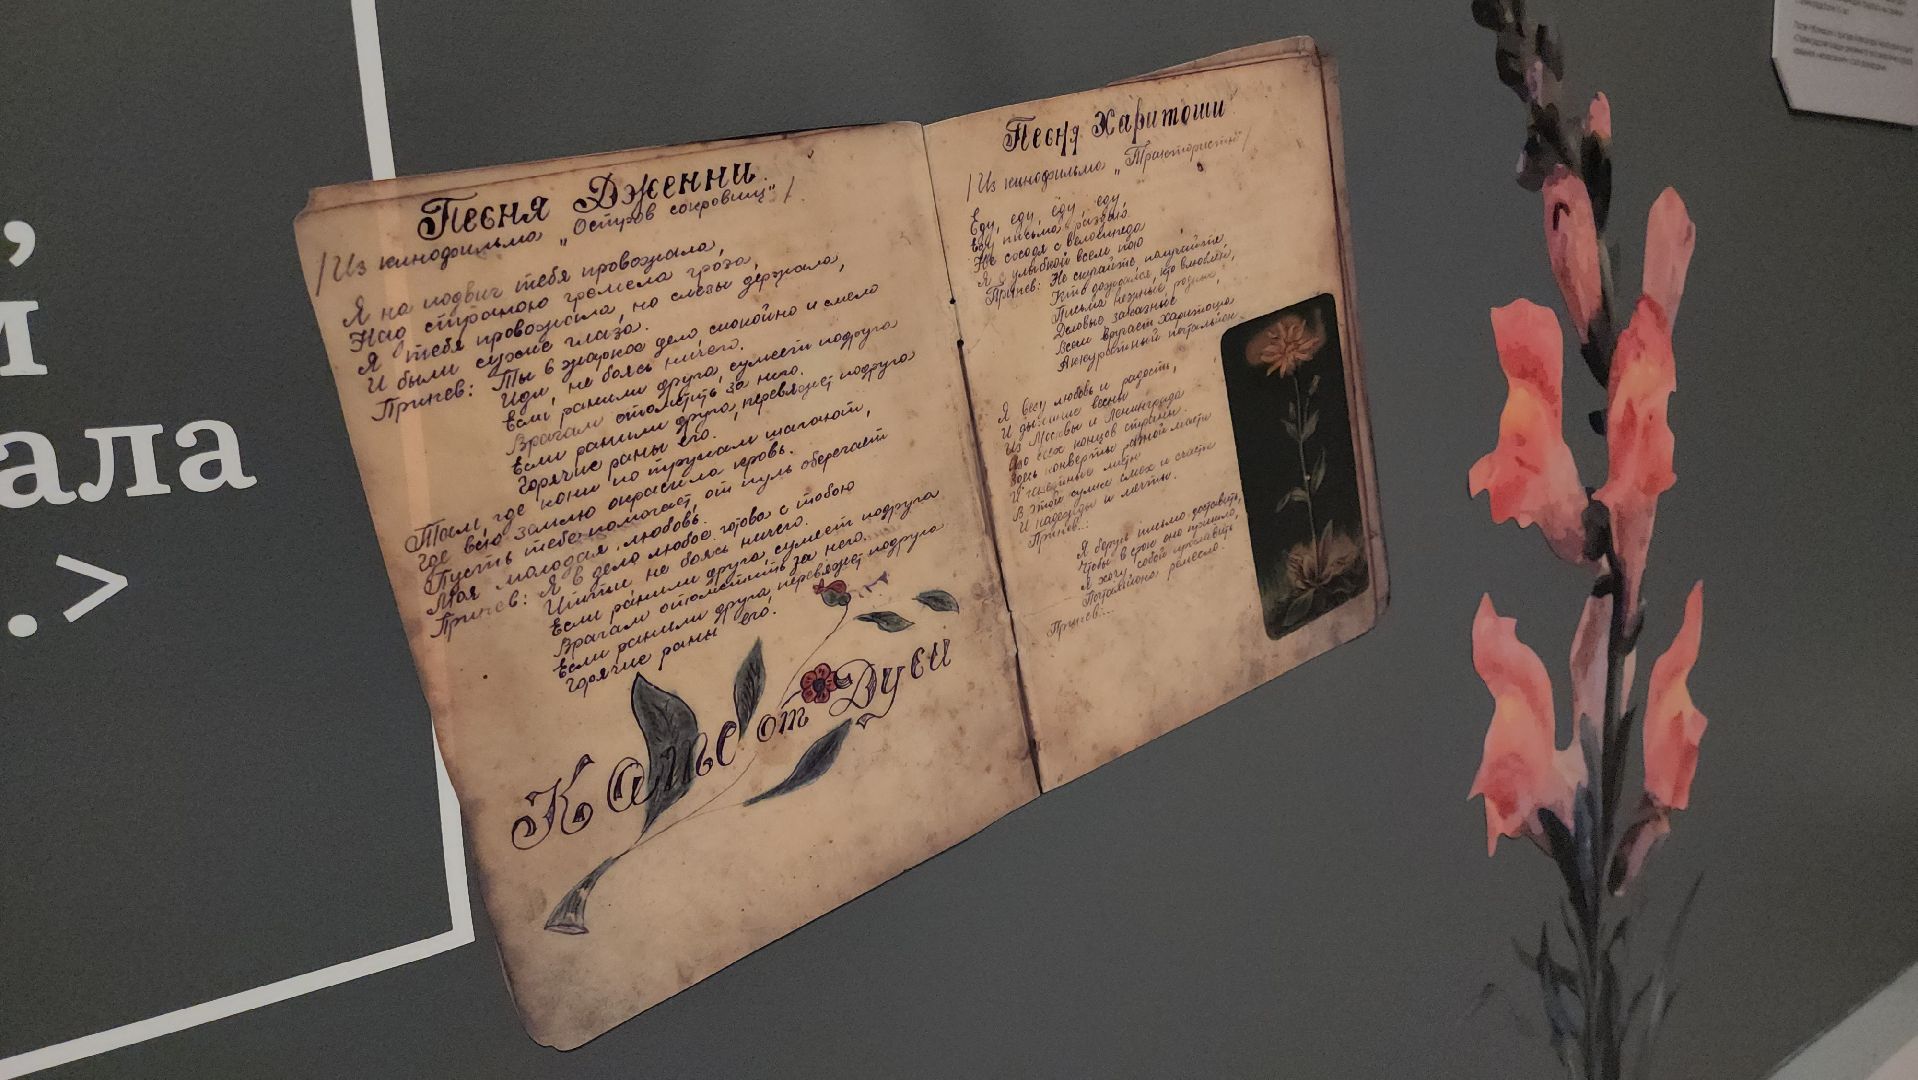 ,
ала
.>
Песня Дженни
/Из кинофильма „Остров сокровищ"/
Я на подвиг тебя провожала,
Над страною гремела гроза,
Я тебя провожала, но слезы держала,
И были сухие глаза.
Припев: Ты в жаркое дело спокойно и смело
Иди, не боясь ничего.
Если ранили друга, сумеет подруга
Врагам отомстить за него.
Если ранили друга, перевяжет подруга
Горячие раны его.
Там, где кони по трупам шагают,
Где всю землю окрасила кровь.
Пусть тебе помогает, от пуль оберегает
Моя молодая любовь.
Припев: Я в дело любое готова с тобою
Итти не боясь ничего.
Если ранили друга, сумеет подруга
Врагам отомстить за него.
Если ранили друга, перевяжет подруга
Горячие раны его.
Кате от Дуси
Песня Харитоши
/Из кинофильма „Трактористы"/
Еду, еду, еду, еду,
Еду письма раздаю.
Не сходя с велосипеда
Я с улыбкой всем пою
Припев: Не скучайте получайте
Кто дождался, кто влюблен,
Письма нежные родные,
Деловые заказные
Всем вручает Харитоша
Аккуратный почтальон.
Я везу любовь и радость,
И дыханье весны
Из Москвы и Ленинграда
Со всех концов страны.
Здесь конверты разной масти
И
В этой сумке смех и счастье
И надежды и мечты.
Припев...
Я берусь письмо доставить,
Чтобы в срок оно пришло,
Я хочу собой прославить
ремесло.
Припев...